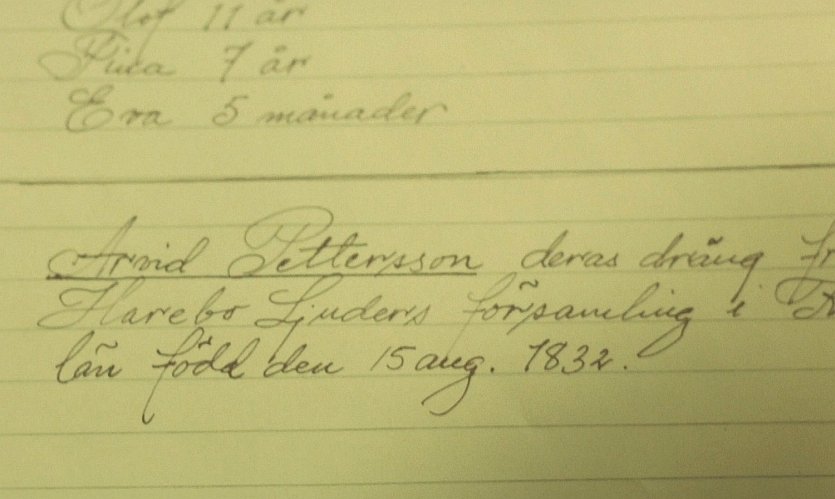 Olof 11 år
Fina 7 år
Eva 5 månader
Arvid Pettersson deras dräng
Harebo Ljuders församling i
län född den 15 aug. 1832.